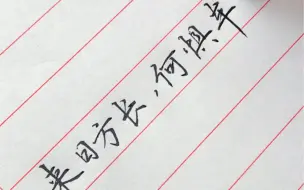 来日方长,何惧车